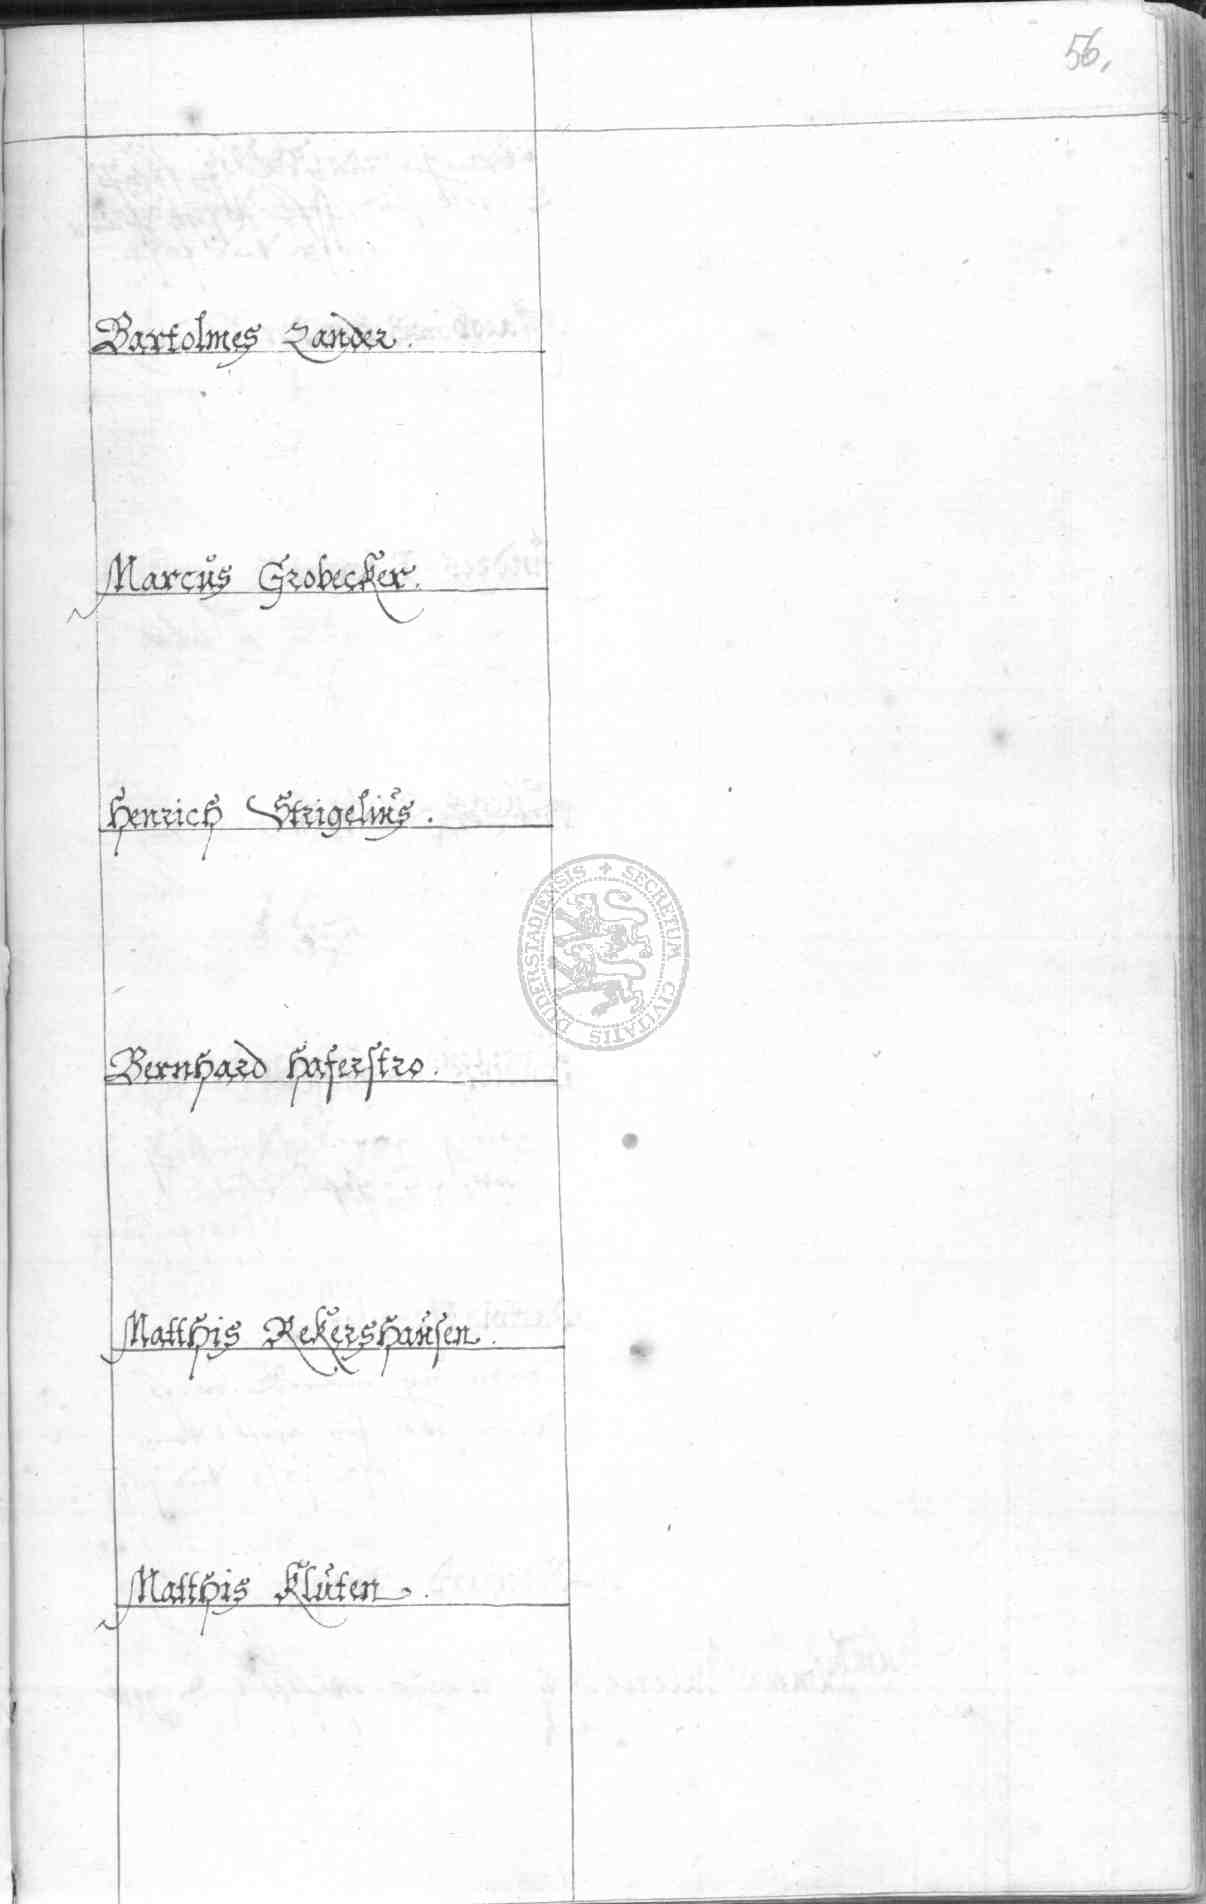 56.
Bartolmes Zander.
Marcus Grobecker.
Henrich Strigelius.
SECRETUM CIVITATIS DUDERSTADIENSIS
Bernhard Haferstro.
Matthis Rekershausen.
Matthis Kluten.